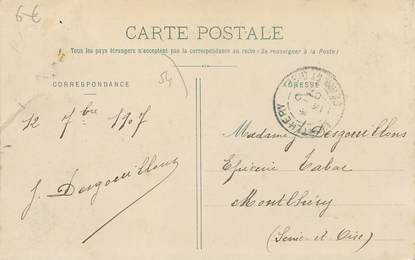 6 €
CARTE POSTALE
Tous les pays étrangers n'acceptent pas la correspondance au recto (Se renseigner à la Poste)
54
CORRESPONDANCE
ADRESSE
12 7bre 1907
Madame
Epicerie Tabac
Montlhéry
(Seine-et-Oise)